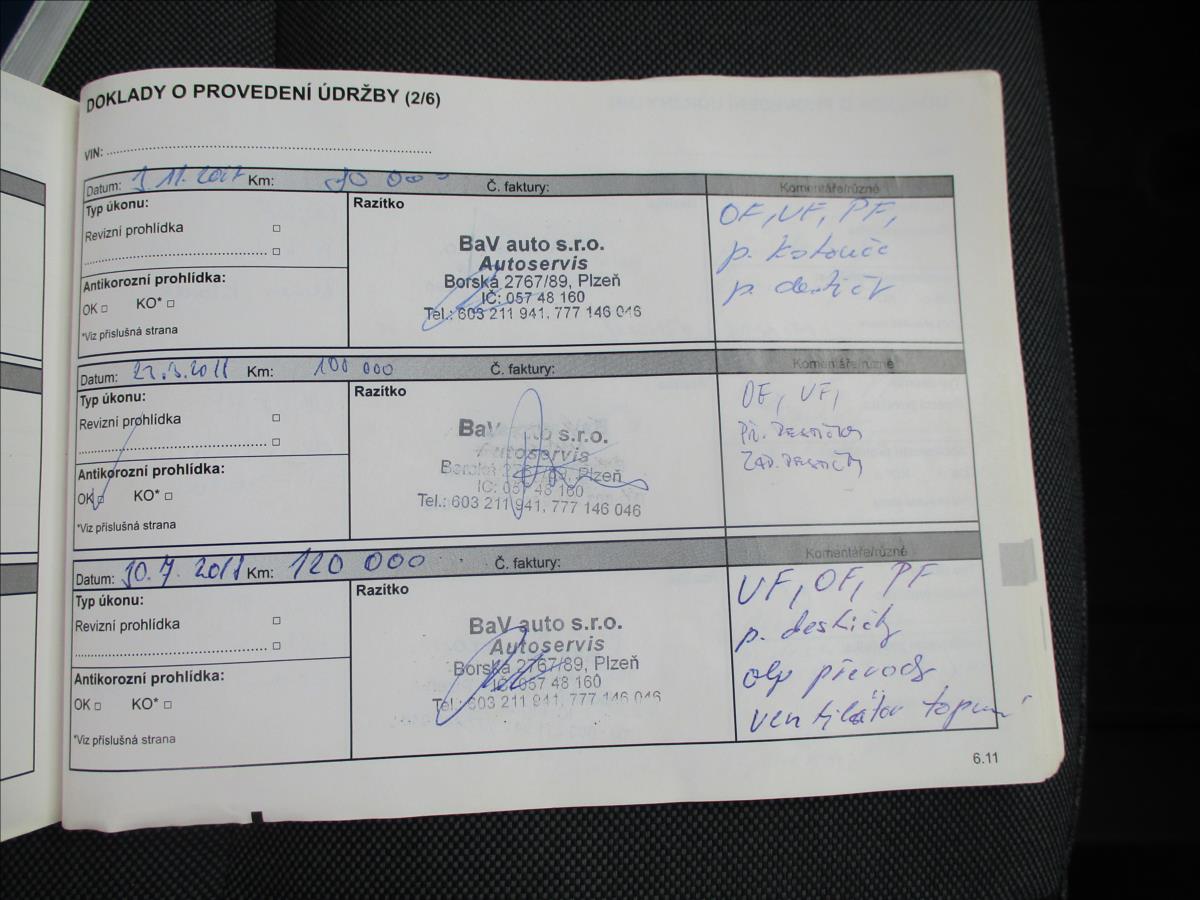 DOKLADY O PROVEDENÍ ÚDRŽBY (2/6)
VIN:
Datum: Km: Č. faktury: Komentáře/různé
Typ úkonu:
Revizní prohlídka
Antikorozní prohlídka:
OK KO*
*Viz příslušná strana
Razítko
BaV auto s.r.o.
Autoservis
Borská 2767/89, Plzeň
IČ: 057 48 160
Tel.: 603 211 941, 777 146 046
OF, VF, PF,
p. kotouče
p. destičky
Datum: Km: 100 000 Č. faktury: Komentáře/různé
Typ úkonu:
Revizní prohlídka
Antikorozní prohlídka:
OK KO*
*Viz příslušná strana
Razítko
BaV auto s.r.o.
Autoservis
Borská 2767/89, Plzeň
IČ: 057 48 160
Tel.: 603 211 941, 777 146 046
OF, VF,
Př. destičky
Zad. destičky
Datum: Km: 120 000 Č. faktury: Komentáře/různé
Typ úkonu:
Revizní prohlídka
Antikorozní prohlídka:
OK KO*
*Viz příslušná strana
Razítko
BaV auto s.r.o.
Autoservis
Borská 2767/89, Plzeň
IČ: 057 48 160
Tel.: 603 211 941, 777 146 046
VF, OF, PF
p. destičky
olej převod.
ventilátor topení
6.11